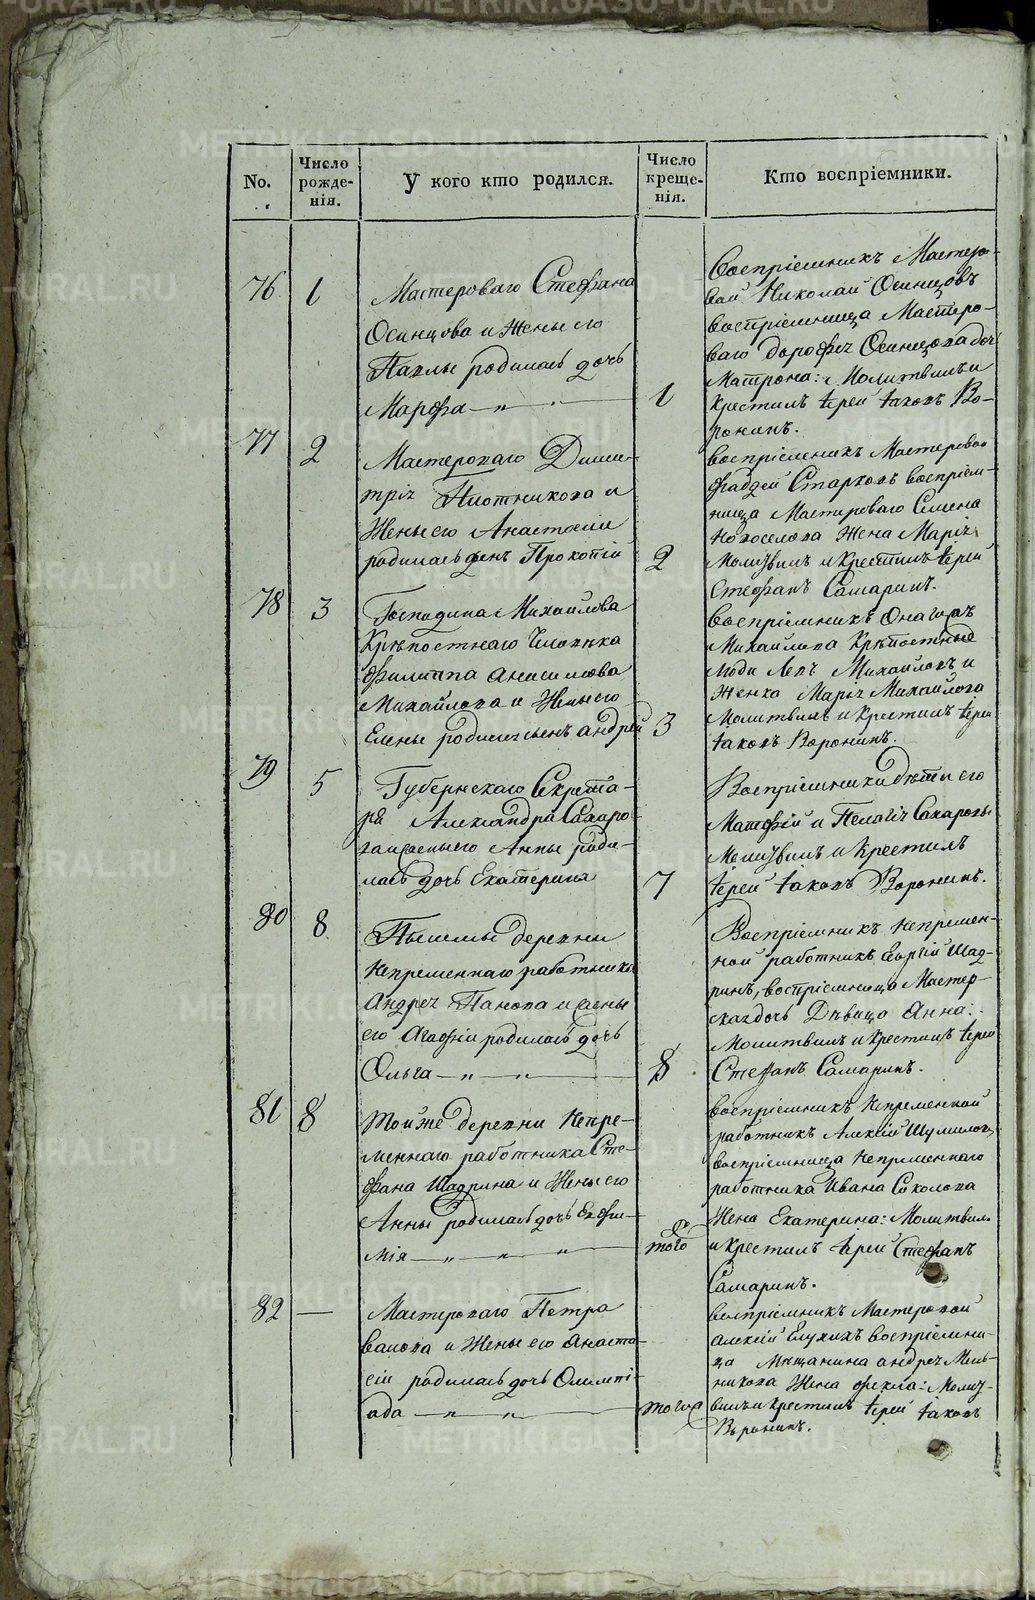 No.
Число рожде-нія.
У кого кто родился.
Число креще-нія.
Кто воспріемники.
76
1
Мастероваго Стефана
Осинцова и жены его
Павлы родилась дочь
Марфа
1
Воспріемникъ Мастеро-
вой Николай Осинцовъ
воспріемница Мастеро-
ваго Дорофея Осинцова доч
Матрона: Молитвилъ и
крестилъ Іерей Іаковъ Во-
ронинъ.
77
2
Мастероваго Дими-
трія Плотникова и
жены его Анастасіи
родился сынъ Прокопій
2
воспріемникъ Мастеровой
Старковъ воспріем-
ница Мастероваго Семена
Новоселова жена Марія
Молитвилъ и крестилъ Іерей
Стефанъ Самаринъ.
78
3
Господина Михайлова
Крѣпостнаго Человѣка
Филиппа Анисимова
Михайлова и жены его
Елены родился сынъ Андрей
3
Воспріемникъ Онагожъ
Михайлова Крѣпостные
люди Левъ Михайловъ и
женка Марія Михайлова
Молитвилъ и крестилъ Іерей
Іаковъ Воронинъ.
79
5
Губернскаго Секрета-
ря Александра Сахаро-
ва и жены его Анны роди-
лась дочь Екатерина
7
Воспріемники дѣти его
Матфій и Пелагія Сахаровы
Молитвилъ и крестилъ
Іерей Іаковъ Воронинъ.
80
8
деревни
Непременнаго работника
Андрея Панова и жены
его Агафіи родилась дочь
Ольга
8
Воспріемникъ Непремен-
ной работникъ Георгій Шад-
ринъ, воспріемница Мастер-
ская дочь Дѣвица Анна:
Молитвилъ и крестилъ Іерей
Стефанъ Самаринъ.
81
8
Той же деревни Непре-
меннаго работника Сте-
фана Шадрина и жены его
Анны родилась дочь Евфи-
мія
того
воспріемникъ Непременной
работникъ Алексій Шумиловъ
воспріемница Непременнаго
работника Ивана Соколова
жена Екатерина: Молитвилъ
и крестилъ Іерей Стефанъ
Самаринъ.
82
—
Мастероваго Петра
и жены его Анаста-
сіи родилась дочь Олимпі-
ада
того
воспріемникъ Мастеровой
Алексій Глухихъ воспріемни-
ца Мѣщанина Андрея Мель-
никова жена Фекла: Молит-
вилъ и крестилъ Іерей Іаковъ
Воронинъ.
METRIKI.GASO-URAL.RU